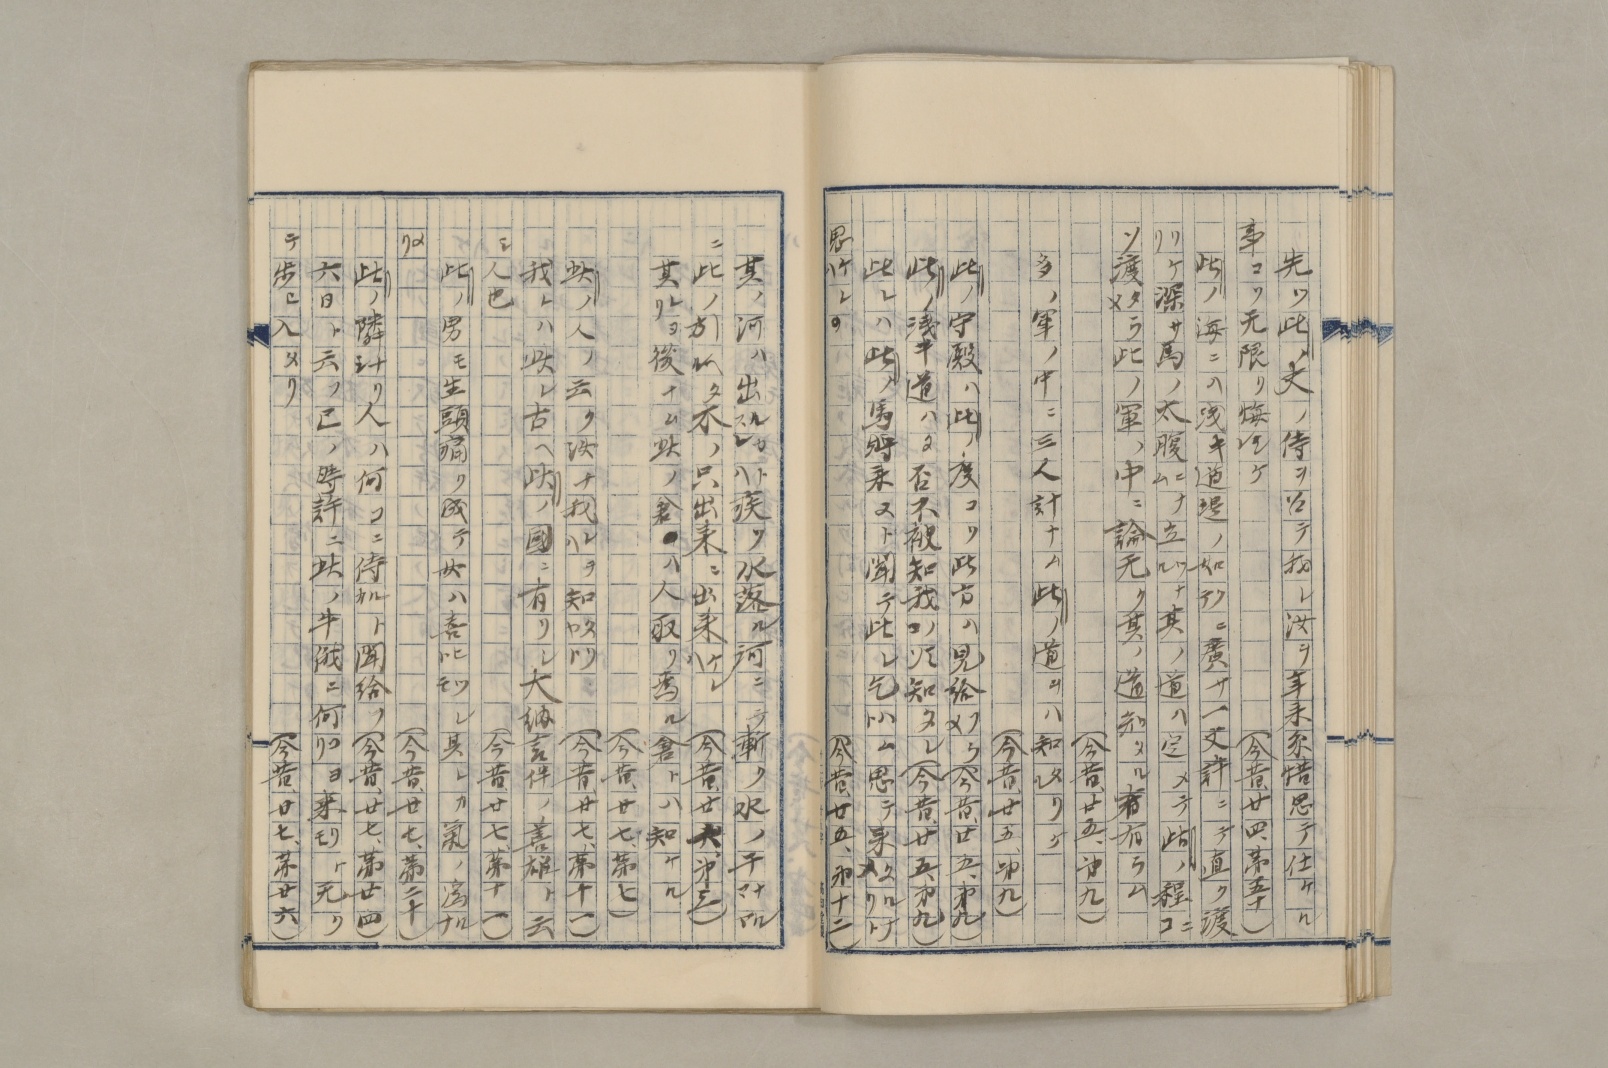 先ツ此ノ夫ノ侍ヲ召テ我レ汝ヲ年来糸惜思テ仕ケル
事コソ无限リ悔シケ(今昔、廿四、第五十)
此ノ海ニハ浅キ道堤ノ如クニテ廣サ一丈許ニテ直ク渡
リケ深サ馬ノ太腹ニナム立ツナル其ノ道ハ定メテ此ノ程ニコ
ソ渡タラメ此ノ軍ノ中ニ論无ク其ノ道知タル者有ラム
(今昔、廿五、第九)
多ノ軍ノ中ニ三人計ナム此ノ道ヲハ知タリケル
(今昔、廿五、第九)
此ノ守殿ハ此ノ度コソ此方ハ見給メラ(今昔、廿五、第九)
此ノ浅キ道ハヱ否不被知我コソ知タレ(今昔、廿五、第九)
此レハ此ノ馬将来ヌト聞テ此レ乞ハム思テ来タルナメリト
思ケレハ(今昔、廿五、第十二)
其ノ河ハ出ルカトスレハ疾ク水落ル河ニテ漸ク水ノ干マヽナル
ニ此ノ引ハタル木ノ只出来ニ出来ケレハ(今昔、廿六、第三)
其レヨリ後ナム此ノ倉ハ人取リ為ル倉トハ知ケル
(今昔、廿七、第七)
此ノ人ノ云ク汝ナ我レヲハ知タリヤ(今昔、廿七、第十一)
我レハ此レ古ヘ此ノ國ニ有リシ大納言伴ノ善雄ト云
シ人也(今昔、廿七、第十一)
此ノ男モ生頭痛ク成テ女ハ喜ヒツレトモ其レカ氣ノ為ルナ
メリ(今昔、廿七、第二十)
此ノ隣ナリシ人ハ何コニ侍ルカト聞給フ(今昔、廿七、第廿四)
六日ト云フ巳ノ時許ニ此ノ牛俄ニ何コヨリ来リトモ无ク
テ歩ミ入タリ(今昔、廿七、第廿六)